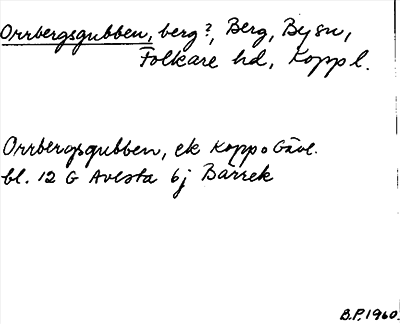 Orrbergsgubben, berg?, Berg, By sn,
Folkare hd, Kopp l.
Orrbergsgubben, ek Kopp o Gävl.
bl. 12 G Avesta 6j Bärrek
B.P. 1960.